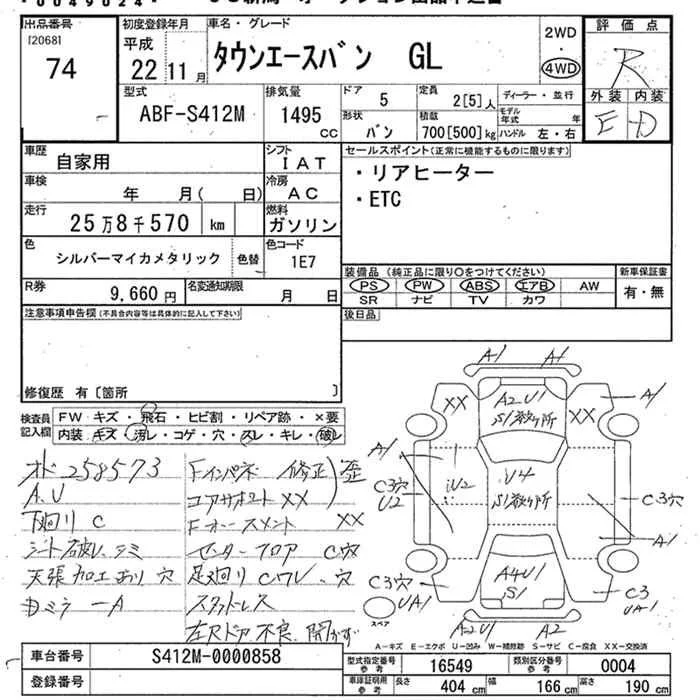 出品番号
[2068]
74
初度登録年月
平成
22 11月
車名・グレード
タウンエースバン GL
2WD
・
4WD
評価点
R
外装 内装
E D
型式
ABF-S412M
排気量
1495
cc
ドア 5
形状 バン
定員 2[5]人
積載 700[500]kg
ディーラー・並行
モデル年式 年
ハンドル 左・右
車歴
自家用
シフト
IAT
車検
年 月( 日)
冷房
AC
走行
25万8千570 km
燃料
ガソリン
色
シルバーマイカメタリック
色替
色コード
1E7
R券
9,660円
名変通知期限
月 日
セールスポイント(正常に機能するものに限ります)
・リアヒーター
・ETC
装備品(純正品に限り○をつけてください)
PS PW ABS エアB AW
SR ナビ TV カワ
新車保証書
有・無
後日品
注意事項申告欄(不具合内容等は具体的に記入して下さい)
修復歴 有〔箇所 〕
検査員
記入欄
FW キズ・飛石・ヒビ割・リペア跡・×要
内装 キズ・汚レ・コゲ・穴・スレ・キレ・破レ
オド258573
A、U
下廻リ C
シート破レ、シミ
天張加工あり、穴
Dミラ一A
Fインパネ 修正 歪
コアサポート XX
Fホースメント XX
センターフロア C穴
足廻リCワレ、穴
スタッドレス
左Rドア不良、開かず
A1 A1
XX A2U1 S1数ヶ所 XX A1
A1
C3穴
U2
iU2
U4
S1数ヶ所
C3穴
A1
C3穴
UA1
A4U1
S1
C3
UA1
A2U1 A2
スペア
A-キズ E-エクボ U-凹み W-補修跡 S-サビ C-腐食 XX-交換済
車台番号
S412M-0000858
登録番号
型式指定番号
参考
16549
類別区分番号
参考
0004
車庫証明用
参考
長さ 404cm
幅 166cm
高さ 190cm